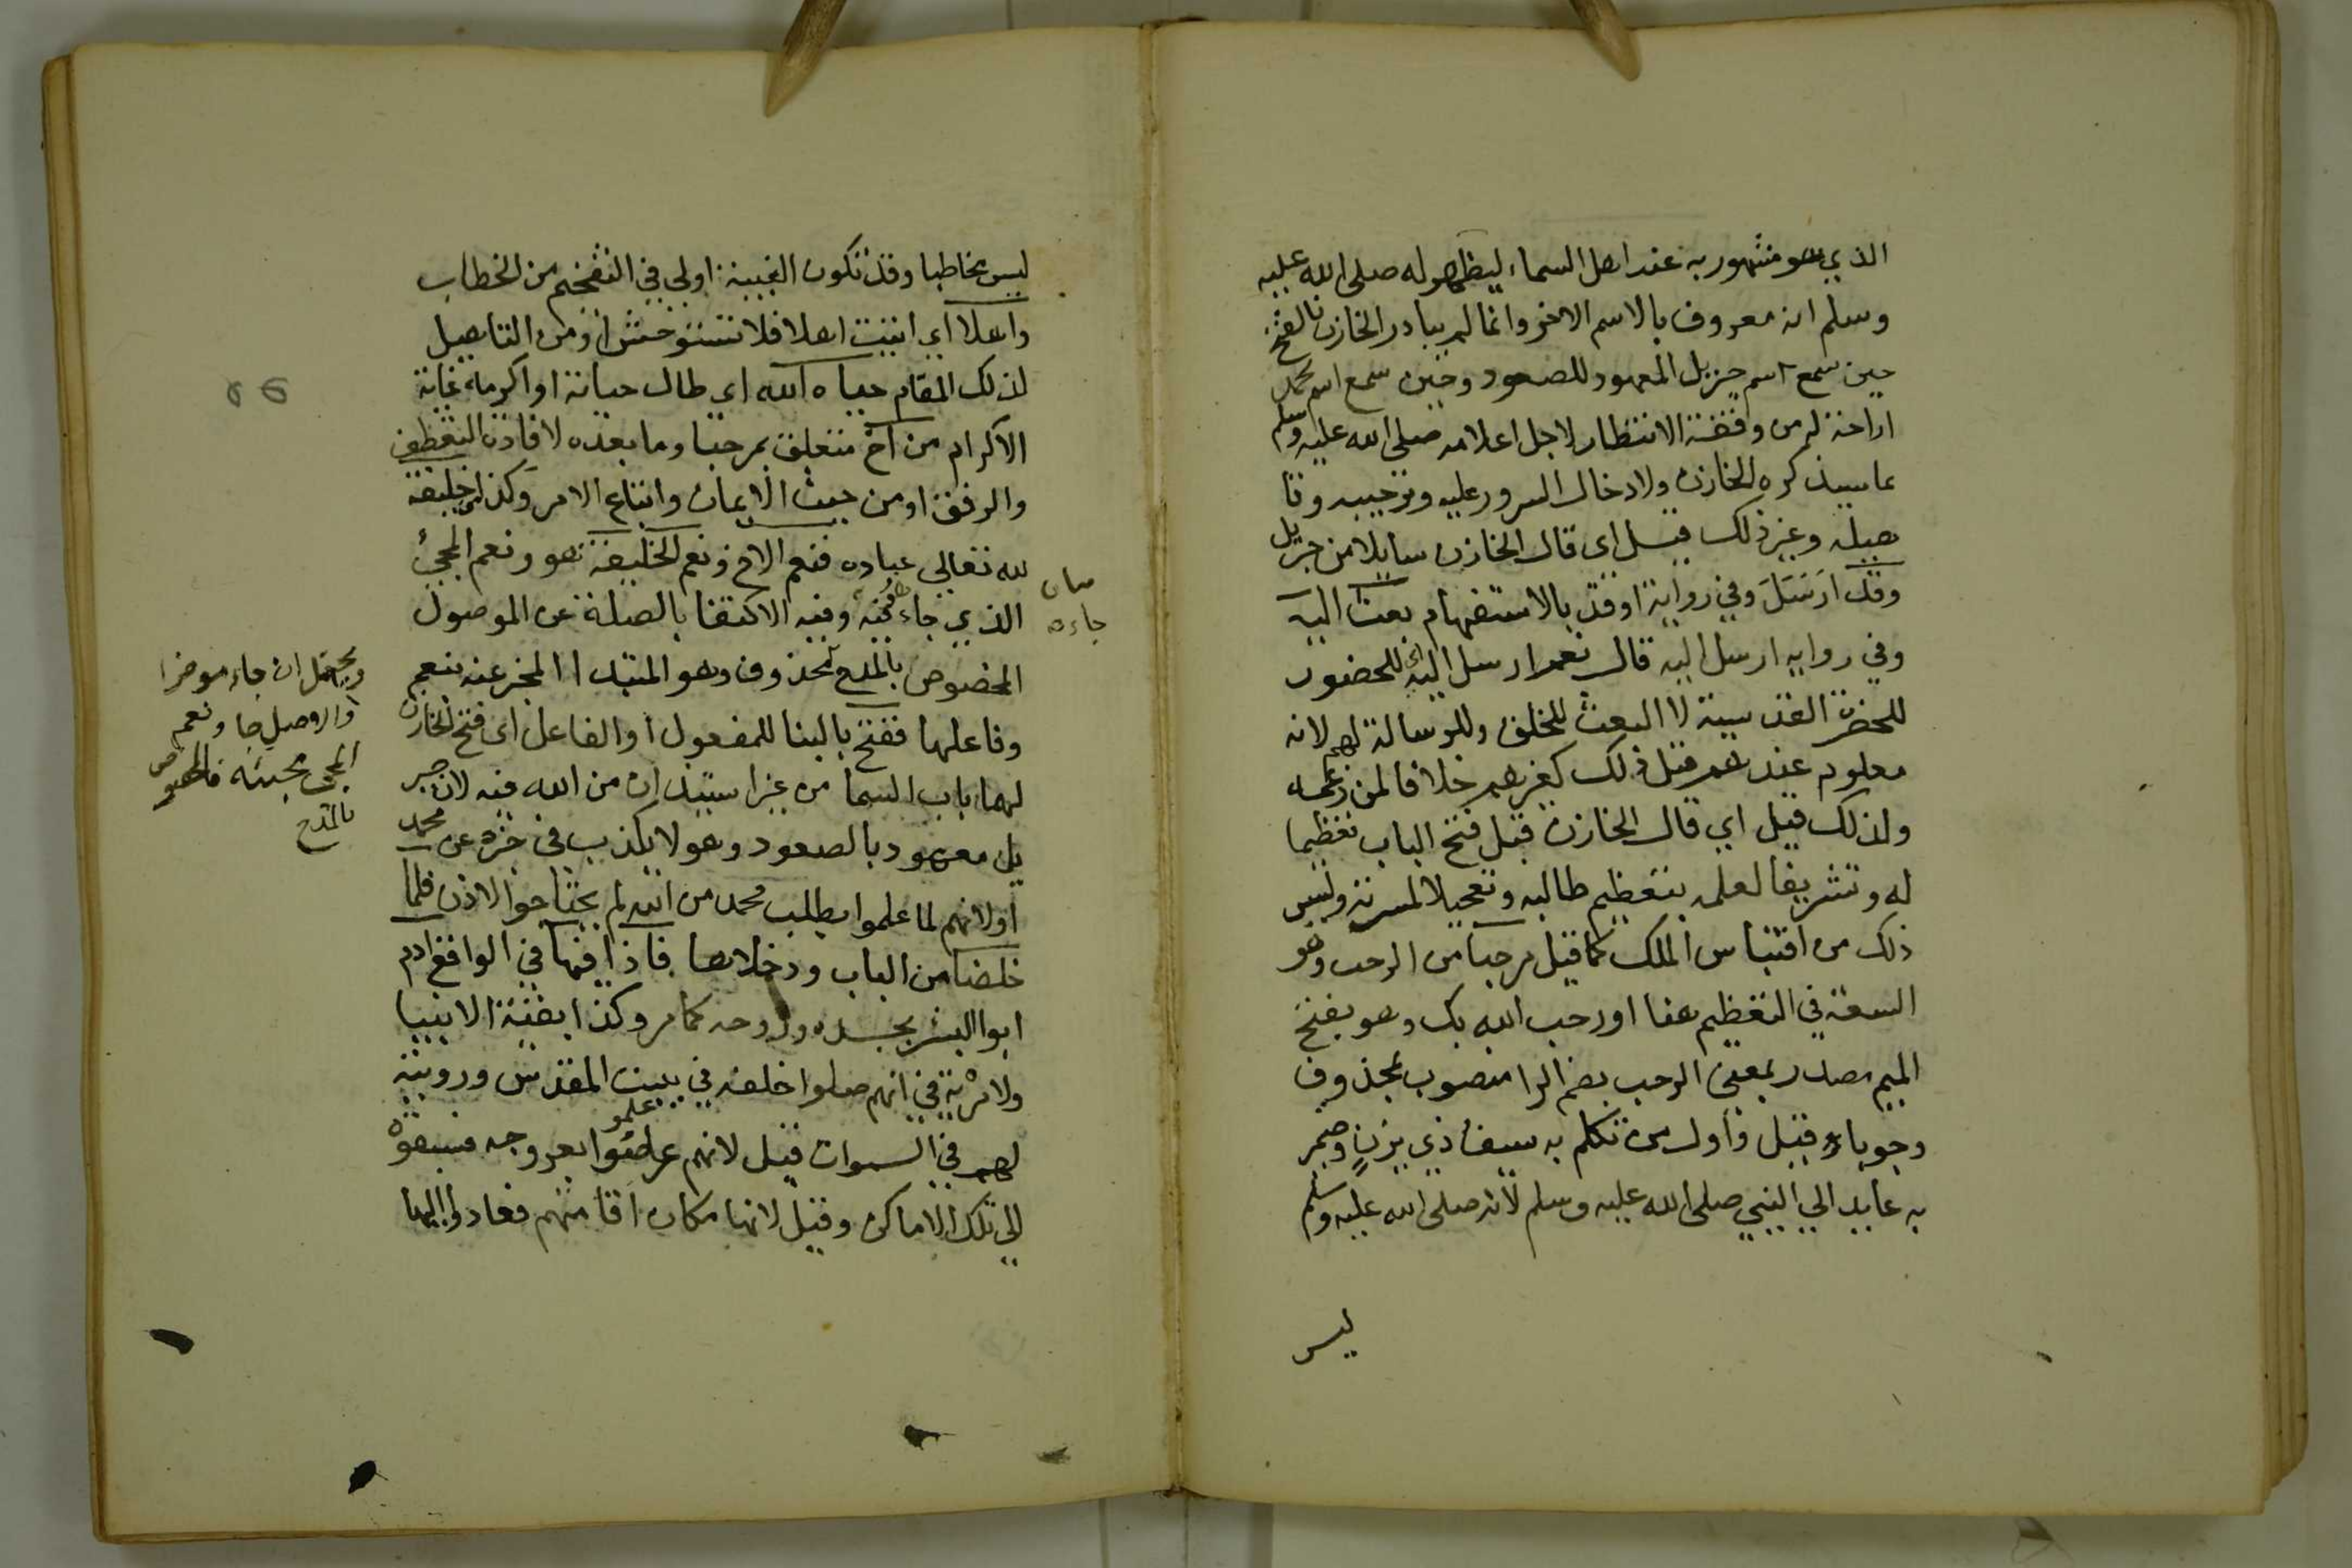 الذي هو مشهور به عند اهل السماء ليظهر له صلى الله عليه
وسلم انه معروف بالاسم الاخر وانما لم يبادر الخازن بالفتح
حين سمع اسم جبريل المعهود للصعود وحين سمع اسم محمد
اراحة له من وقفة الانتظار لاجل اعلامه صلى الله عليه وسلم
بما سيذكره الخازن ولادخال السرور عليه وترحيبه وتا
هيله وغير ذلك قيل اى قال الخازن سايلا من جبريل
وقد ارسل وفي رواية اوقد بالاستفهام بعث اليه
وفي رواية ارسل اليه قال نعم ارسل اليه اى للحضور
للحضرة القدسية لا البعث للخلق وللرسالة لهم لانه
معلوم عندهم قبل ذلك كغيرهم خلافا لمن زعمه
ولذلك قيل اي قال الخازن قبل فتح الباب تعظيما
له وتشريفا لعلمه بتعظيم طالبه وتعجيلا لمسرته وليس
ذلك من اقتباس الملك كما قيل مرحبا من الرحب وهو
السعة في التعظيم هنا اورحب الله بك وهو بفتح
الميم مصدر بمعنى الرحب بضم الرا منصوب بمحذوف
وجوباء قيل واول من تكلم به سيف ذي يزن وضمير
به عايد الي النبي صلى الله عليه وسلم لانه صلى الله عليه وسلم
ليس
ليس مخاطبا وقد تكون الغيبة اولى في التفخيم من الخطاب
واهلا اي اتيت اهلا فلا تستوحش او من التاهيل
لذلك المقام حياه الله اي طال حياته او اكرمه غاية
الاكرام من اخ متعلق بمرحبا وما بعده لافادة التعطف
والرفق او من حيث الايمان واتباع الامر وكذا خليفة
لله تعالي عباده فنعم الاخ ونعم الخليفة هو ونعم المجئ
الذي جاء وفيه الاكتفا بالصلة عن الموصول
جاءه
المخصوص بالمدح محذوف وهو المبتدا المخبر عنه بنعم
وفاعلها ففتح بالبنا للمفعول او الفاعل اى فتح الخازن
لهما باب السما من غير استيذان من الله فيه لان جبر
يل معهود بالصعود وهو لا يكذب في خبره عن محمد
اولانهم لما علموا بطلب محمد من الله لم يحتاجوا الاذن فلما
خلصا من الباب ودخلاها فاذا فيها في الواقع ادم
ابوا البشر بجسده وروحه كما مر وكذا بقية الانبيا
ولا مرية في انهم صلوا خلفه في بيت المقدس ورويته
لهم في السموات قيل لانهم علموا بعروجه فسبقوه
الي تلك الاماكن وقيل لانها مكان اقامتهم فعادوا اليها
ويحتمل ان جاء موخرا
والاصل جا ونعم
المجى مجيئه فالمخصوص
بالمدح